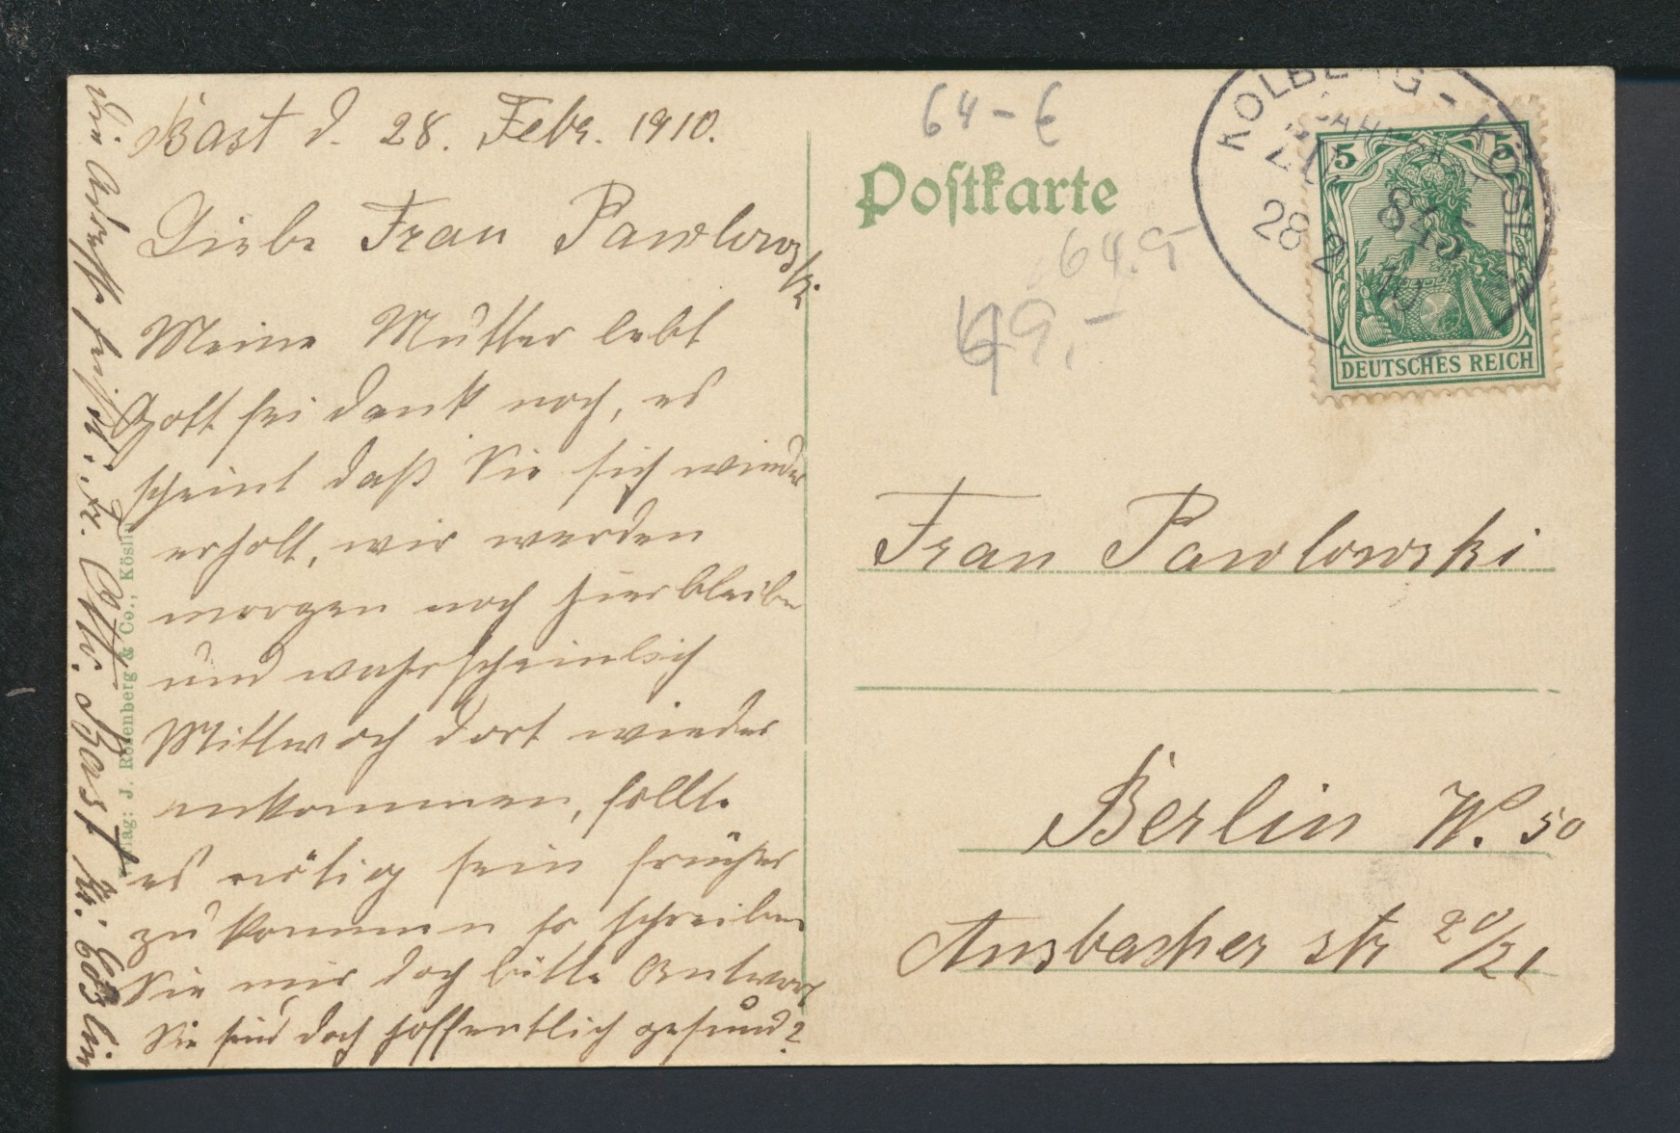 Bast d. 28. Febr. 1910.
Liebe Frau Pawlowski.
Meine Mutter lebt
Gott sei dank noch, es
scheint daß Sie sich wieder
erholt, wir werden
morgen noch hierbleiben
und wahrscheinlich
Mittwoch dort wieder
ankommen, sollte
es nötig sein früher
zu kommen so schreiben
Sie mir doch bitte Antwort
Sie sind doch hoffentlich gesund?
Die Adresse heißt: Fr. Bast Kr. Cöslin
Verlag: J. Rosenberg & Co., Köslin
64 - €
Postkarte
64.9-
49,-
KOLBERG - KÖSLIN
BAHNPOST
ZUG 845
28 2 10
5 5
DEUTSCHES REICH
Frau Pawlowski
Berlin W. 50
Ansbacher str 20/21